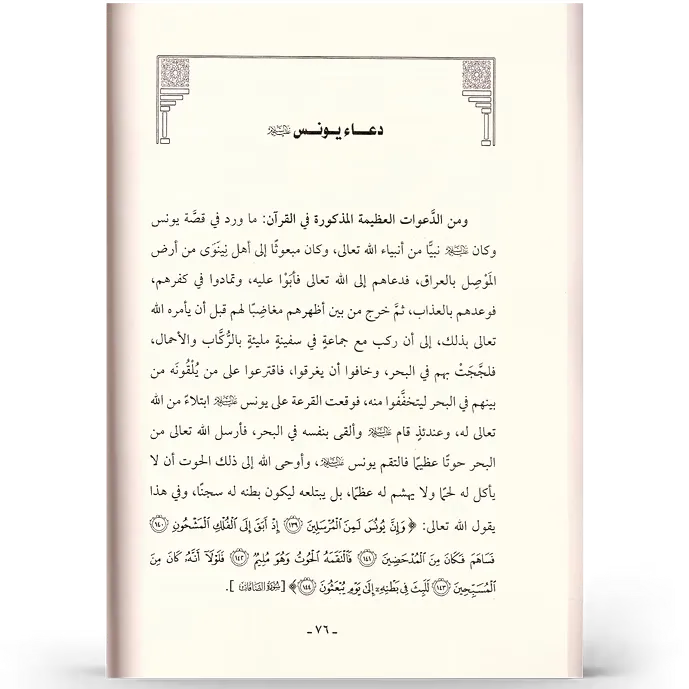 دعـــاء يـونــس عليه السلام
ومن الدَّعوات العظيمة المذكورة في القرآن: ما ورد في قصَّة يونس
وكان عليه السلام نبيًّا من أنبياء الله تعالى، وكان مبعوثًا إلى أهل نِينَوَى من أرض
المَوْصِل بالعراق، فدعاهم إلى الله تعالى فأبَوْا عليه، وتمادوا في كفرهم،
فوعدهم بالعذاب، ثمَّ خرج من بين أظهرهم مغاضِبًا لهم قبل أن يأمره الله
تعالى بذلك، إلى أن ركب مع جماعةٍ في سفينةٍ مليئةٍ بالرُّكَّاب والأحمال،
فلجَّجَتْ بهم في البحر، وخافوا أن يغرقوا، فاقترعوا على من يُلْقُونَه من
بينهم في البحر ليتخفَّفوا منه، فوقعت القرعة على يونس عليه السلام ابتلاءً من الله
تعالى له، وعندئذٍ قام عليه السلام وألقى بنفسه في البحر، فأرسل الله تعالى من
البحر حوتًا عظيمًا فالتقم يونس عليه السلام، وأوحى الله إلى ذلك الحوت أن لا
يأكل له لحمًا ولا يهشم له عظمًا، بل يبتلعه ليكون بطنه له سجنًا، وفي هذا
يقول الله تعالى: ﴿وَإِنَّ يُونُسَ لَمِنَ الْمُرْسَلِينَ ١٣٩ إِذْ أَبَقَ إِلَى الْفُلْكِ الْمَشْحُونِ ١٤٠
فَسَاهَمَ فَكَانَ مِنَ الْمُدْحَضِينَ ١٤١ فَالْتَقَمَهُ الْحُوتُ وَهُوَ مُلِيمٌ ١٤٢ فَلَوْلَا أَنَّهُ كَانَ مِنَ
الْمُسَبِّحِينَ ١٤٣ لَلَبِثَ فِي بَطْنِهِ إِلَى يَوْمِ يُبْعَثُونَ ١٤٤﴾ [سُورَةُ الصَّافَّاتِ].
- ٧٦ -